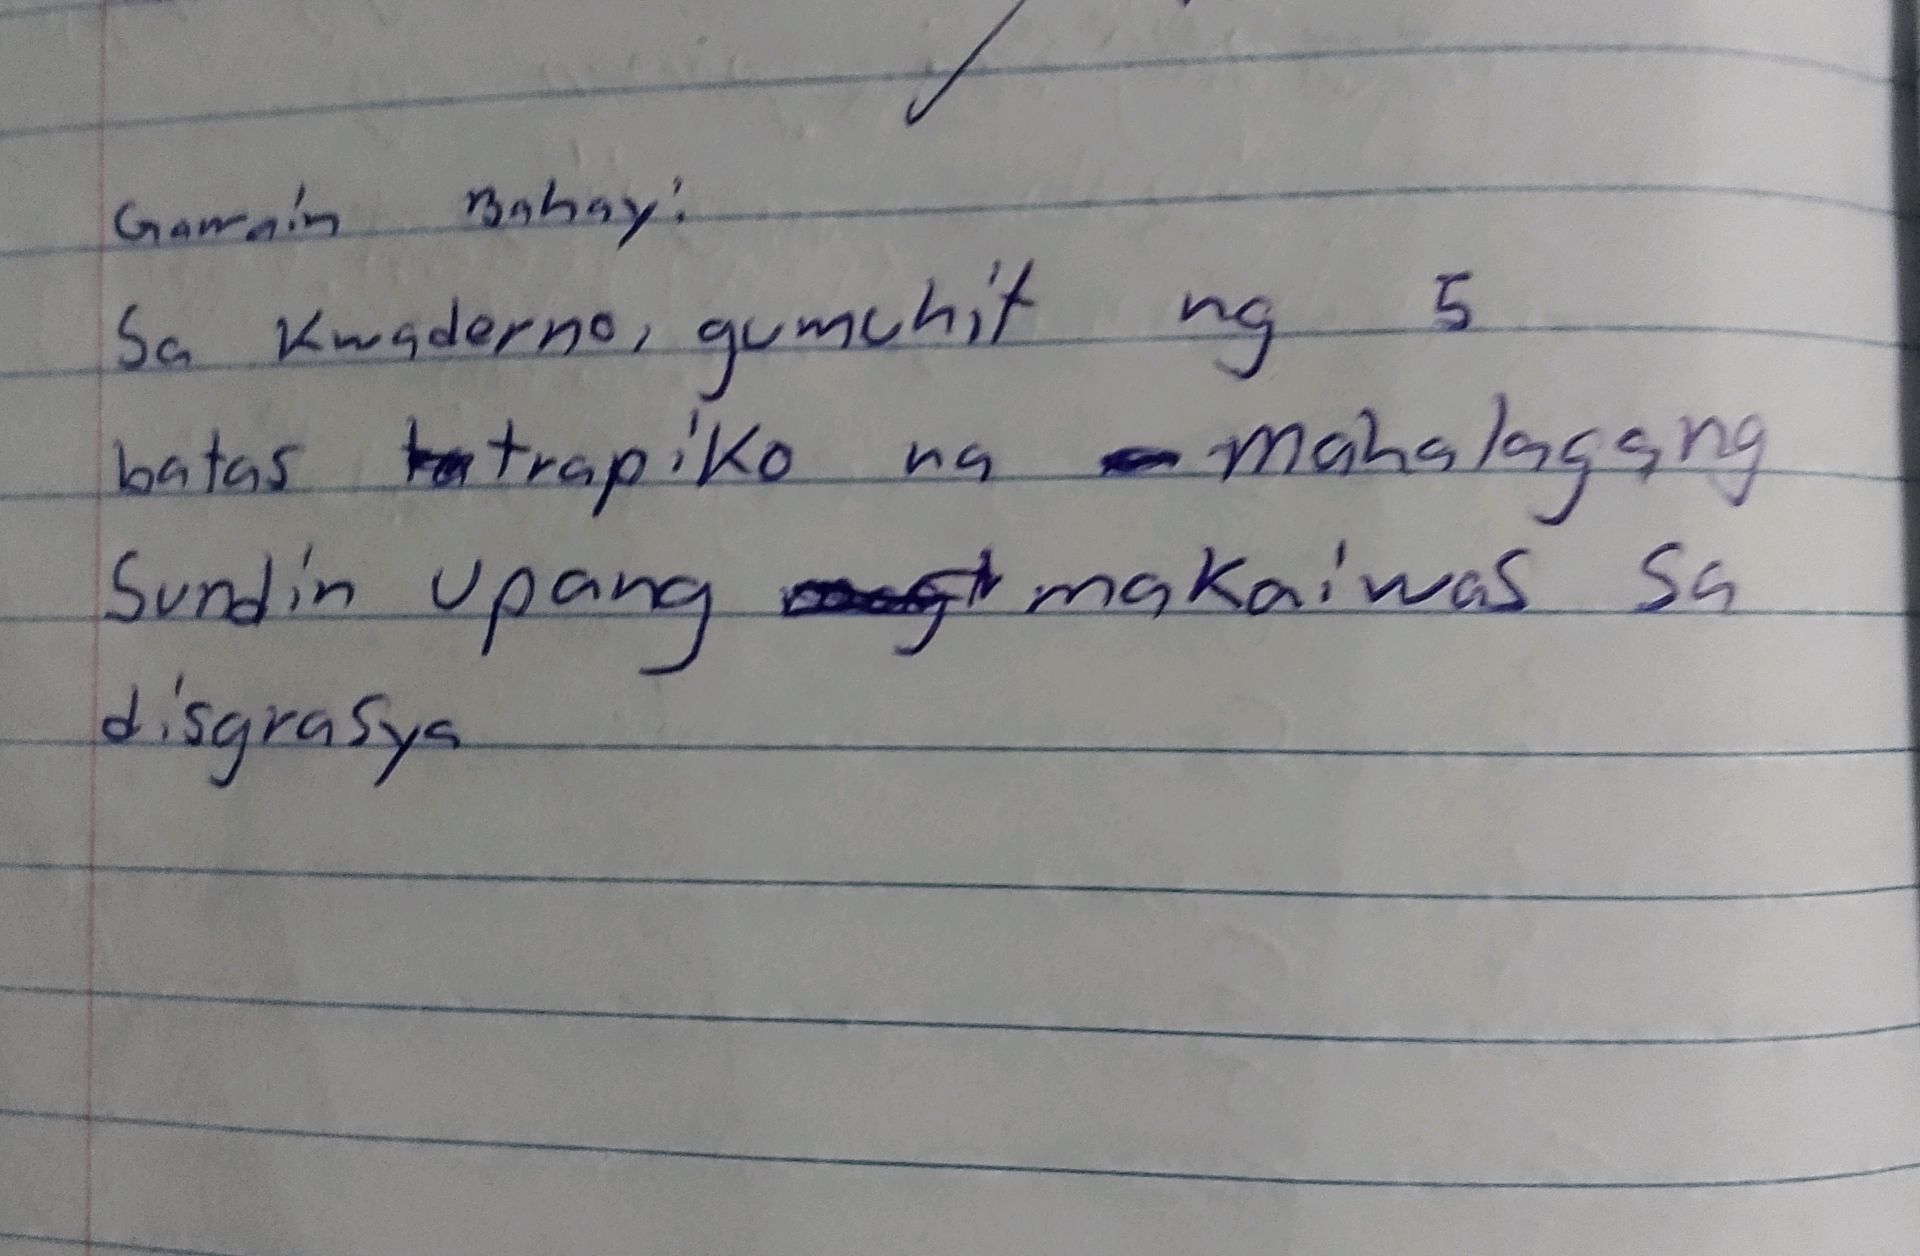 Gawain Bahay:
Sa Kwaderno, gumuhit ng 5
batas trapiko na mahalagang
Sundin upang makaiwas sa
disgrasya